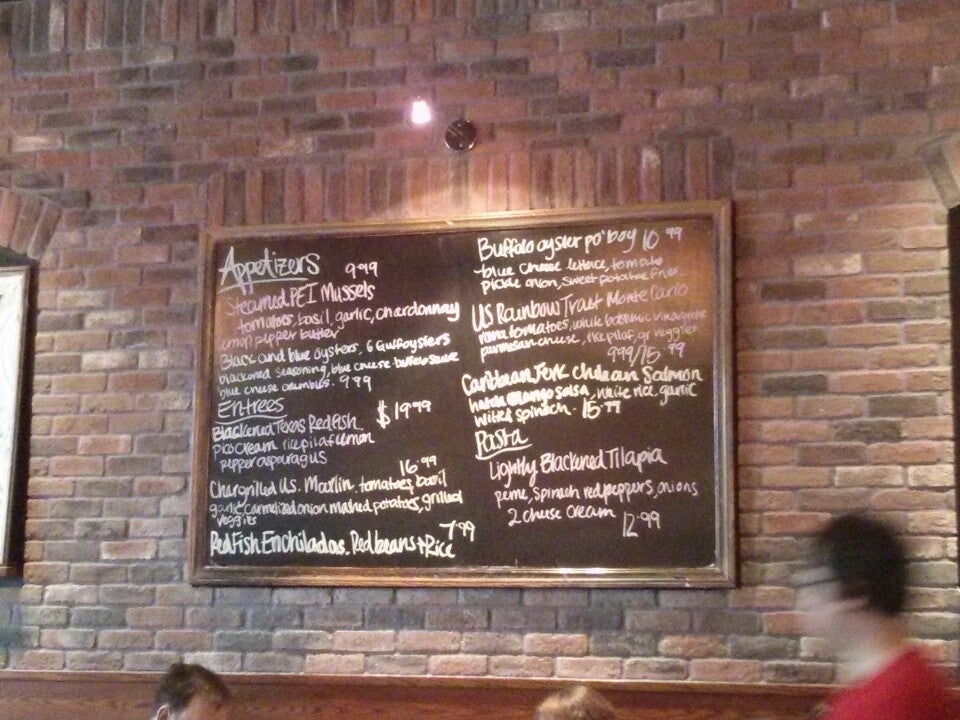 Appetizers 9.99
Steamed PEI Mussels
tomatoes, basil, garlic, chardonnay
lemon pepper butter
Black and blue oysters, 6 Gulf oysters
blackened seasoning, blue cheese buffalo sauce
blue cheese crumbles. 9.99
Entrees
$19.99
Blackened Texas Redfish,
pico cream rice pilaf lemon
pepper asparagus
16.99
Chargrilled U.S. Marlin, tomatoes, basil
garlic, carmelized onion mashed potatoes, grilled
veggies
7.99
RedFish Enchiladas, Red beans + Rice
Buffalo oyster po'boy 10.99
blue cheese lettuce, tomato
pickle onion, sweet potatoe fries
US Rainbow Trout Monte Carlo
roma tomatoes, white balsamic vinaigrette
parmesan cheese, rice pilaf, gr veggies
9.99/15.99
Caribbean Jerk chilean Salmon
mango salsa, white rice, garlic
wilted spinach. 15.99
Pasta
Lightly Blackened Tilapia
penne, spinach red peppers, onions
2 cheese cream 12.99